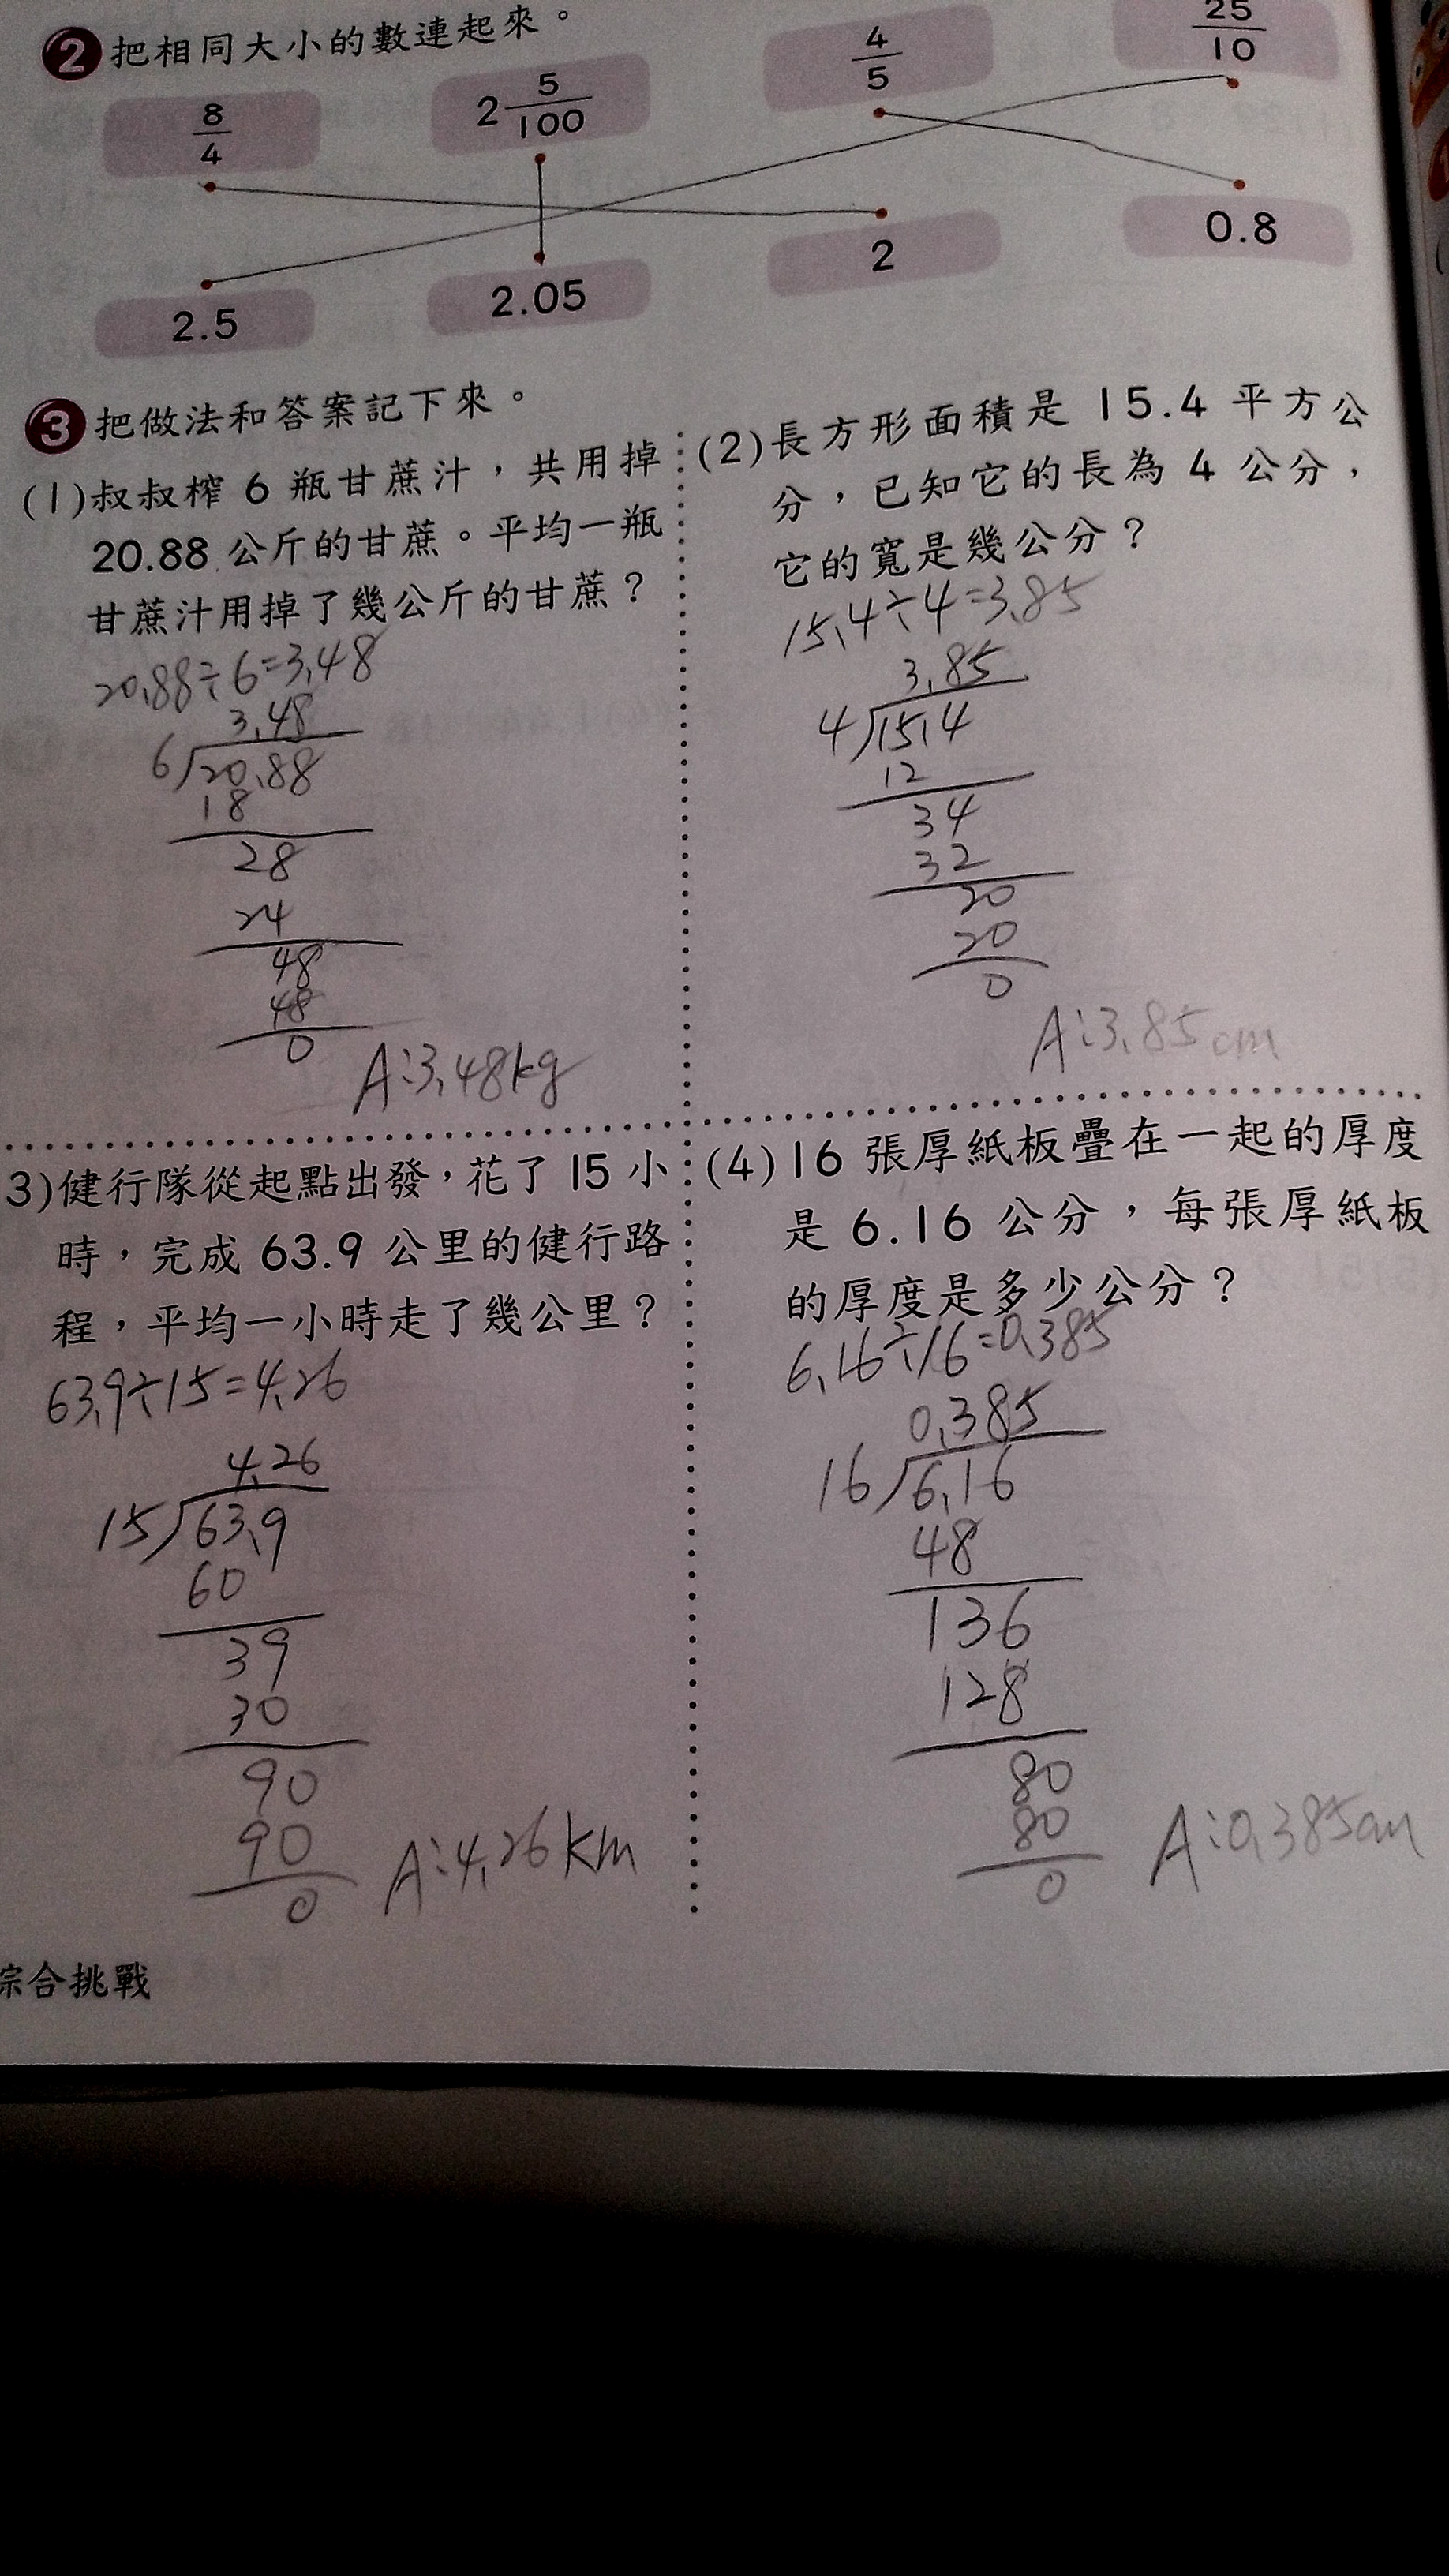 2 把相同大小的數連起來。
8/4
2 5/100
4/5
25/10
2.5
2.05
2
0.8
3 把做法和答案記下來。
(1)叔叔榨 6 瓶甘蔗汁，共用掉
20.88 公斤的甘蔗。平均一瓶
甘蔗汁用掉了幾公斤的甘蔗？
20.88÷6=3.48
3.48
6 20.88
18
28
24
48
48
0
A:3.48kg
(2)長方形面積是 15.4 平方公
分，已知它的長為 4 公分，
它的寬是幾公分？
15.4÷4=3.85
3.85
4 15.4
12
34
32
20
20
0
A:3.85cm
3)健行隊從起點出發，花了 15 小
時，完成 63.9 公里的健行路
程，平均一小時走了幾公里？
63.9÷15=4.26
4.26
15 63.9
60
39
30
90
90
0
A:4.26km
(4)16 張厚紙板疊在一起的厚度
是 6.16 公分，每張厚紙板
的厚度是多少公分？
6.16÷16=0.385
0.385
16 6.16
48
136
128
80
80
0
A:0.385cm
綜合挑戰